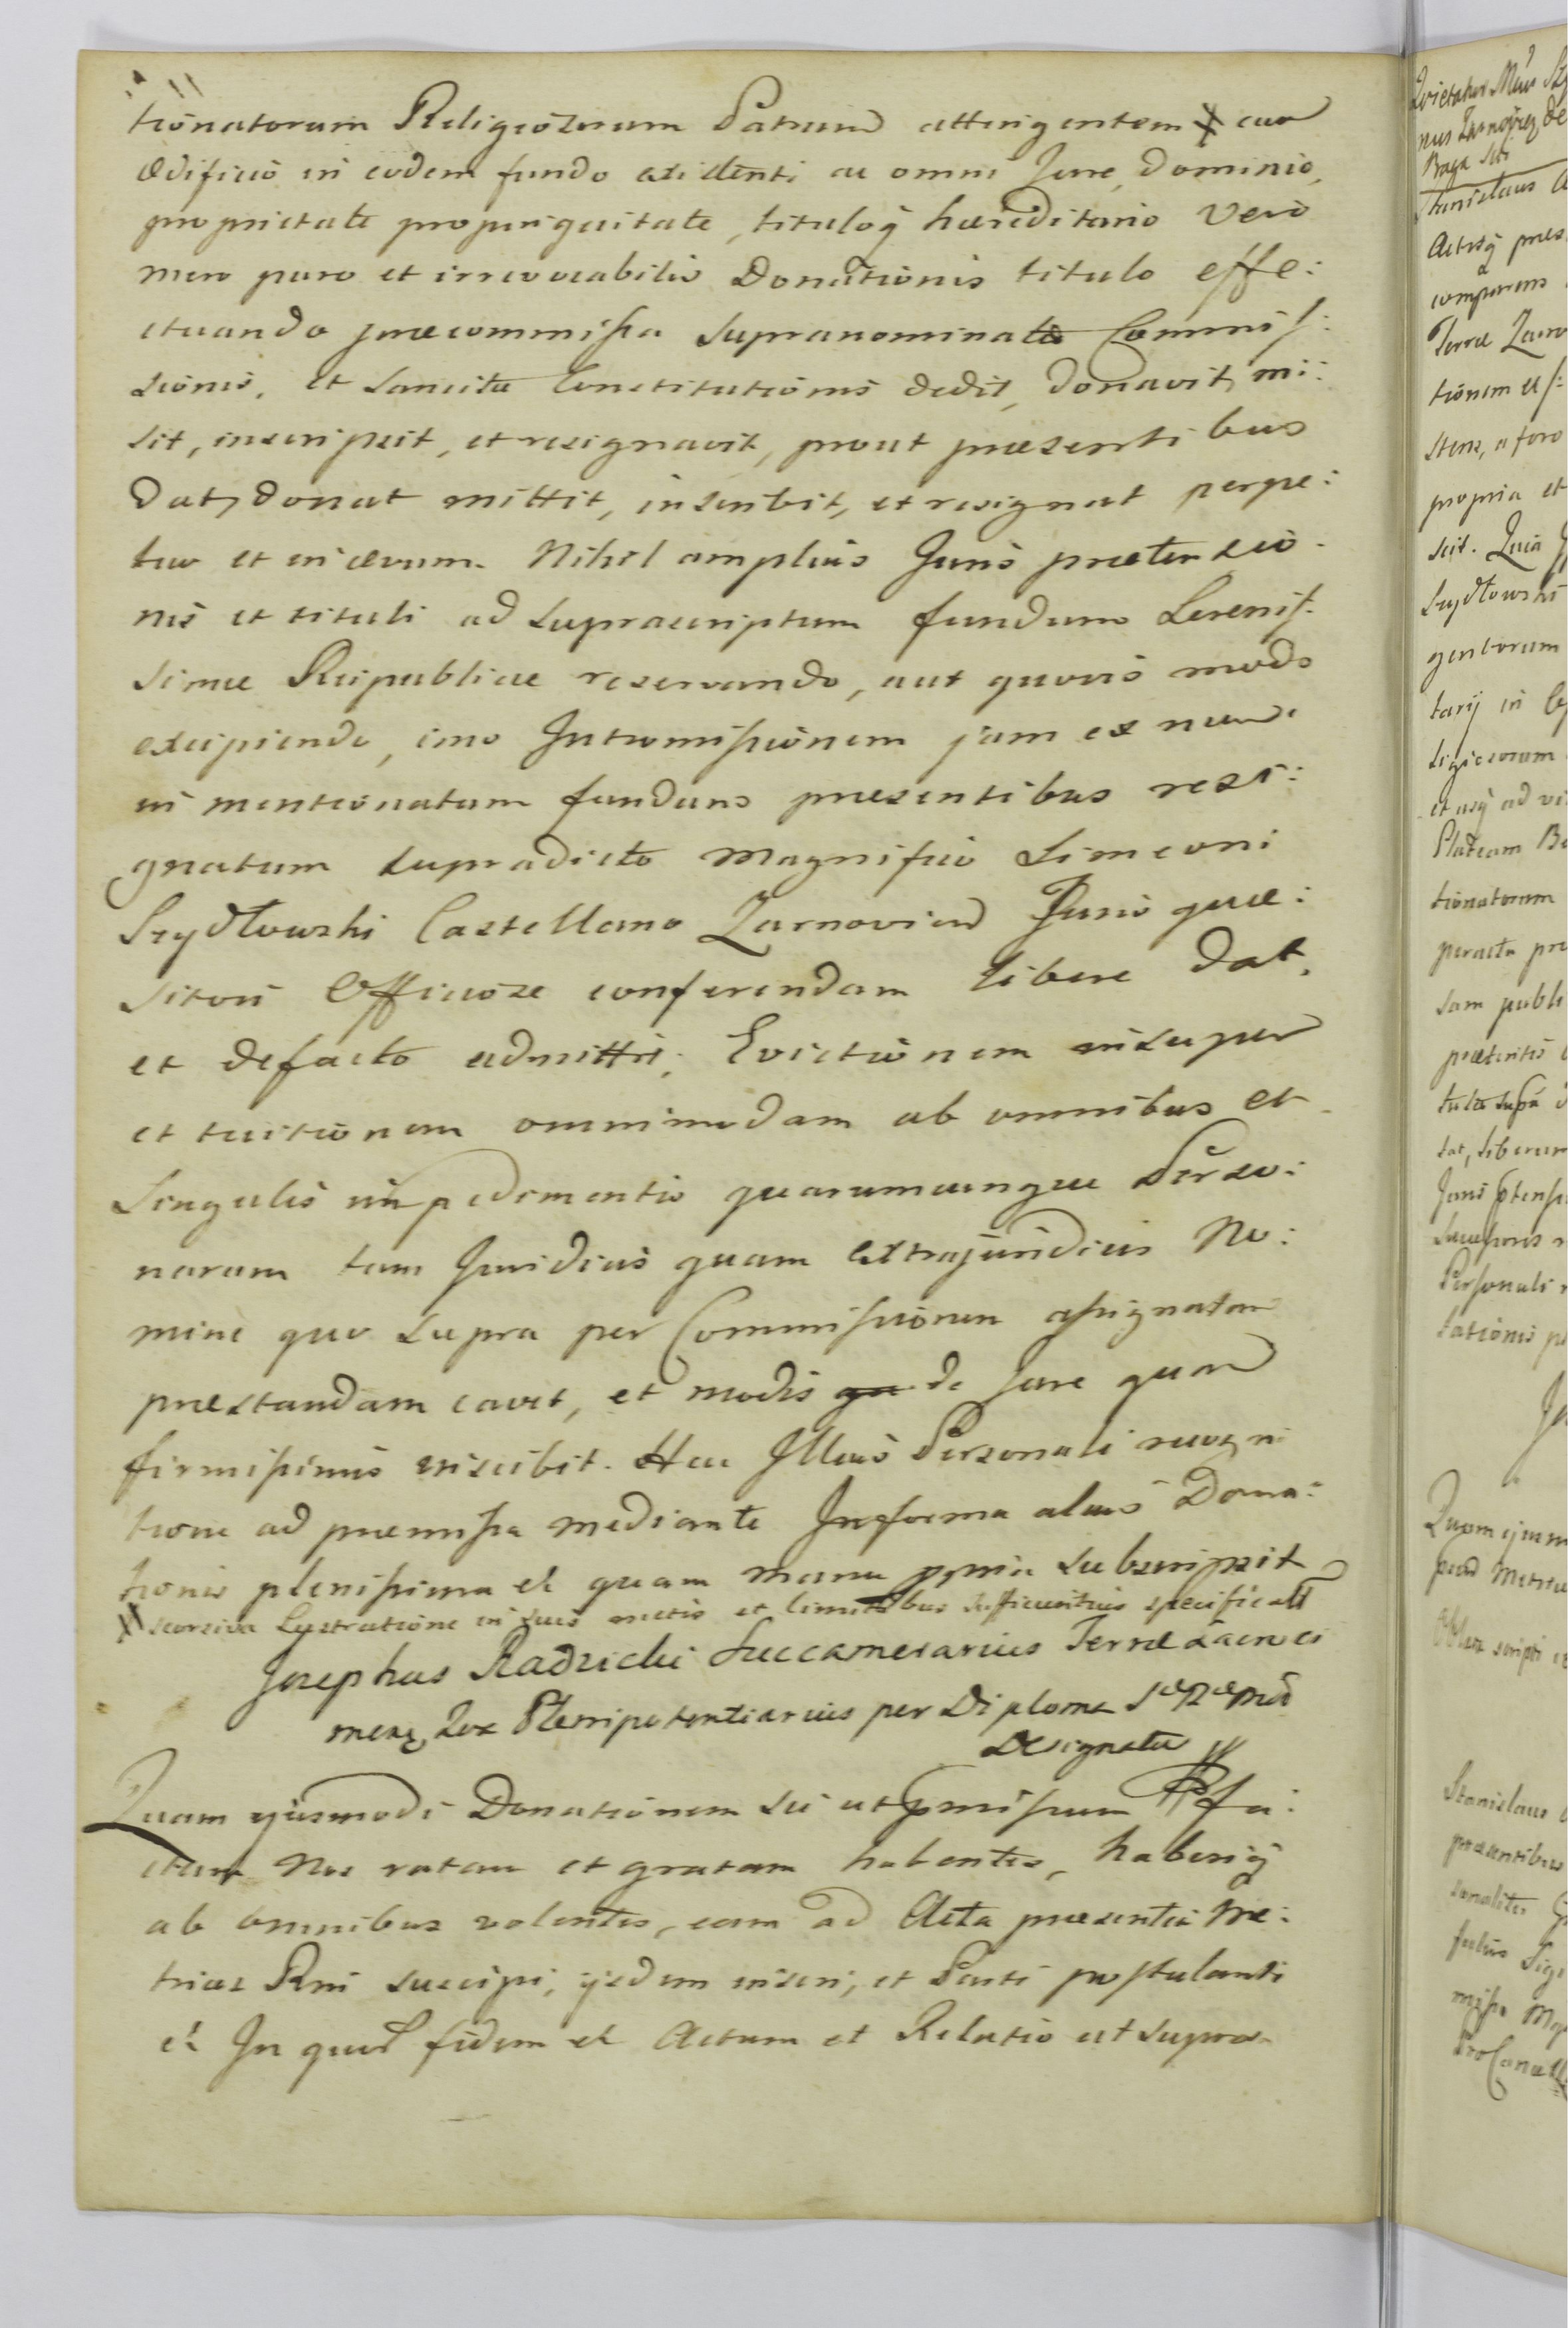 tionatorum Religiosorum Patrum attingentem X cum
Ædificio in eodem fundo existenti ac omni Jure, Dominio,
proprietate propinquitate, tituloq hæreditario Vero
mero puro et irrevocabilis Donationis titulo effe:
ctuando præcommissa supranominatæ Commis:
sionis, et sancita Constitutionis dedit, donavit, mi:
sit, inscripsit, et resignavit, prout præsentibus
Dat, donat mittit, inscribit, et resignat perpe:
tuo et in ævum. Nihil amplius Juris prætensio
nis et tituli ad suprascriptum fundum Sereniss:
simæ Reipublicæ reservando, aut quovis modo
excipiendo, imo Intromissionem jam ex nunc
in mentionatum fundum præsentibus resi:
gnatum supradicto Magnifico Simeoni
Szydłowski Castellano Zarnovien Juris quæ:
sitori Officiose conferendam libere Dat,
et defacto admittit; Evictionem insuper
et tuitionem omnimodam ab omnibus et
Singulis impedimentis quarumcunque Perso:
narum tam Juridicis quam extrajuridicis No:
mine quo supra per Commissionem assignatam
præstandam cavet, et modis de Jure quam
firmissimis inscibit. Hac Illius Personali recogni
tione ad præmissa mediante In forma alias Dona:
tionis plenissima et quam manu ppria subscripsit
X scorsiva Lustratione in suis metis et limitibus sufficientius specificatt
Josephus Radzicki Succamerarius Terræ Zacroci
mens, qua Plenipotentiarius per Diploma
Designatus
Quam ejusmodi Donationem sic ut pmissum fa:
ctam Nos ratam et gratam habentes, haberiq
ab omnibus volentes, eam ad Acta præsentia Me:
trices Rni suscipi, ijsdem inseri, et Parti postulanti
et In quor fidem et Actum et Relatio ut supra
Stanislaus
Actisq præs
comparens
Terræ Zacro
tionem
stens, a foro
propria et
scit. Quia
Szydłowski
gentorum
tarij in
ligiosorum
et usq ad
Plateam
tionatorum
peracta
sam publi
præteritis
Juris
Personali
tationis
Quam ejusm
Stanislaus
præsentibus
sonaliter